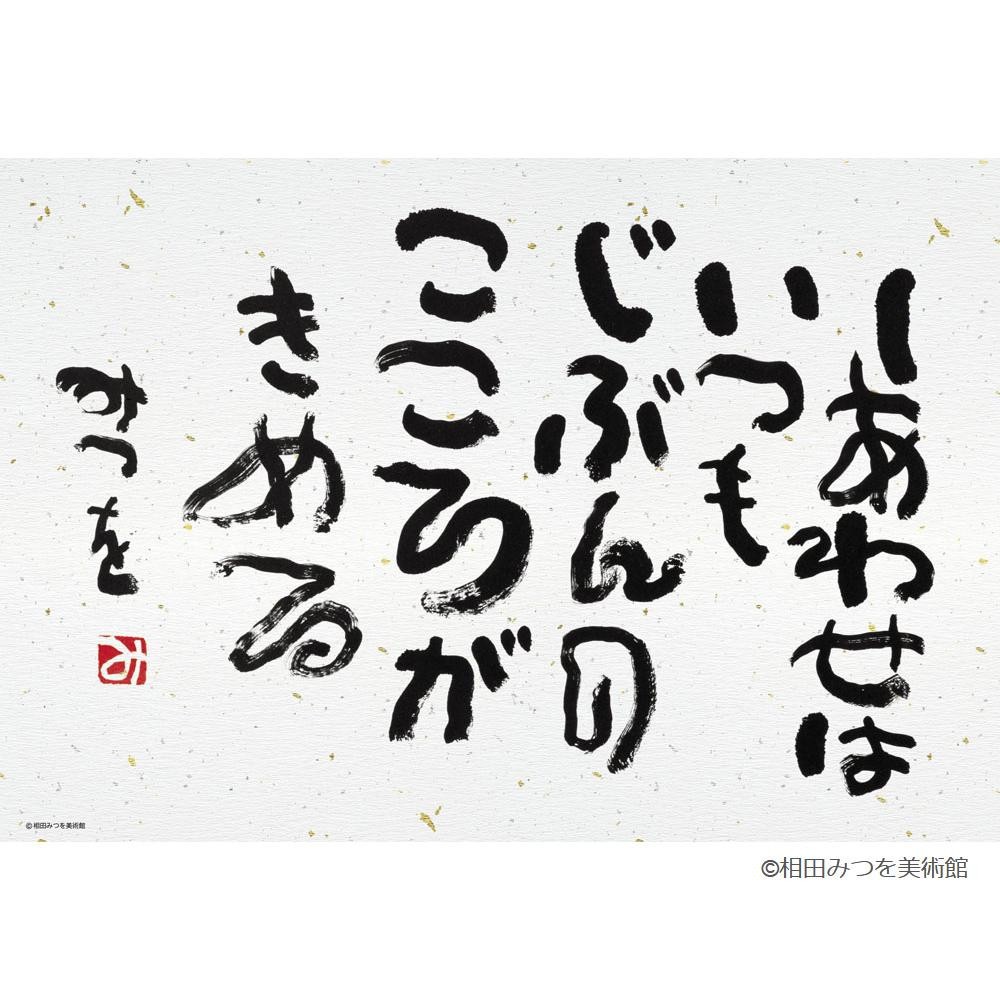 しあわせは
いつも
じぶんの
こころが
きめる
みつを
©相田みつを美術館
©相田みつを美術館